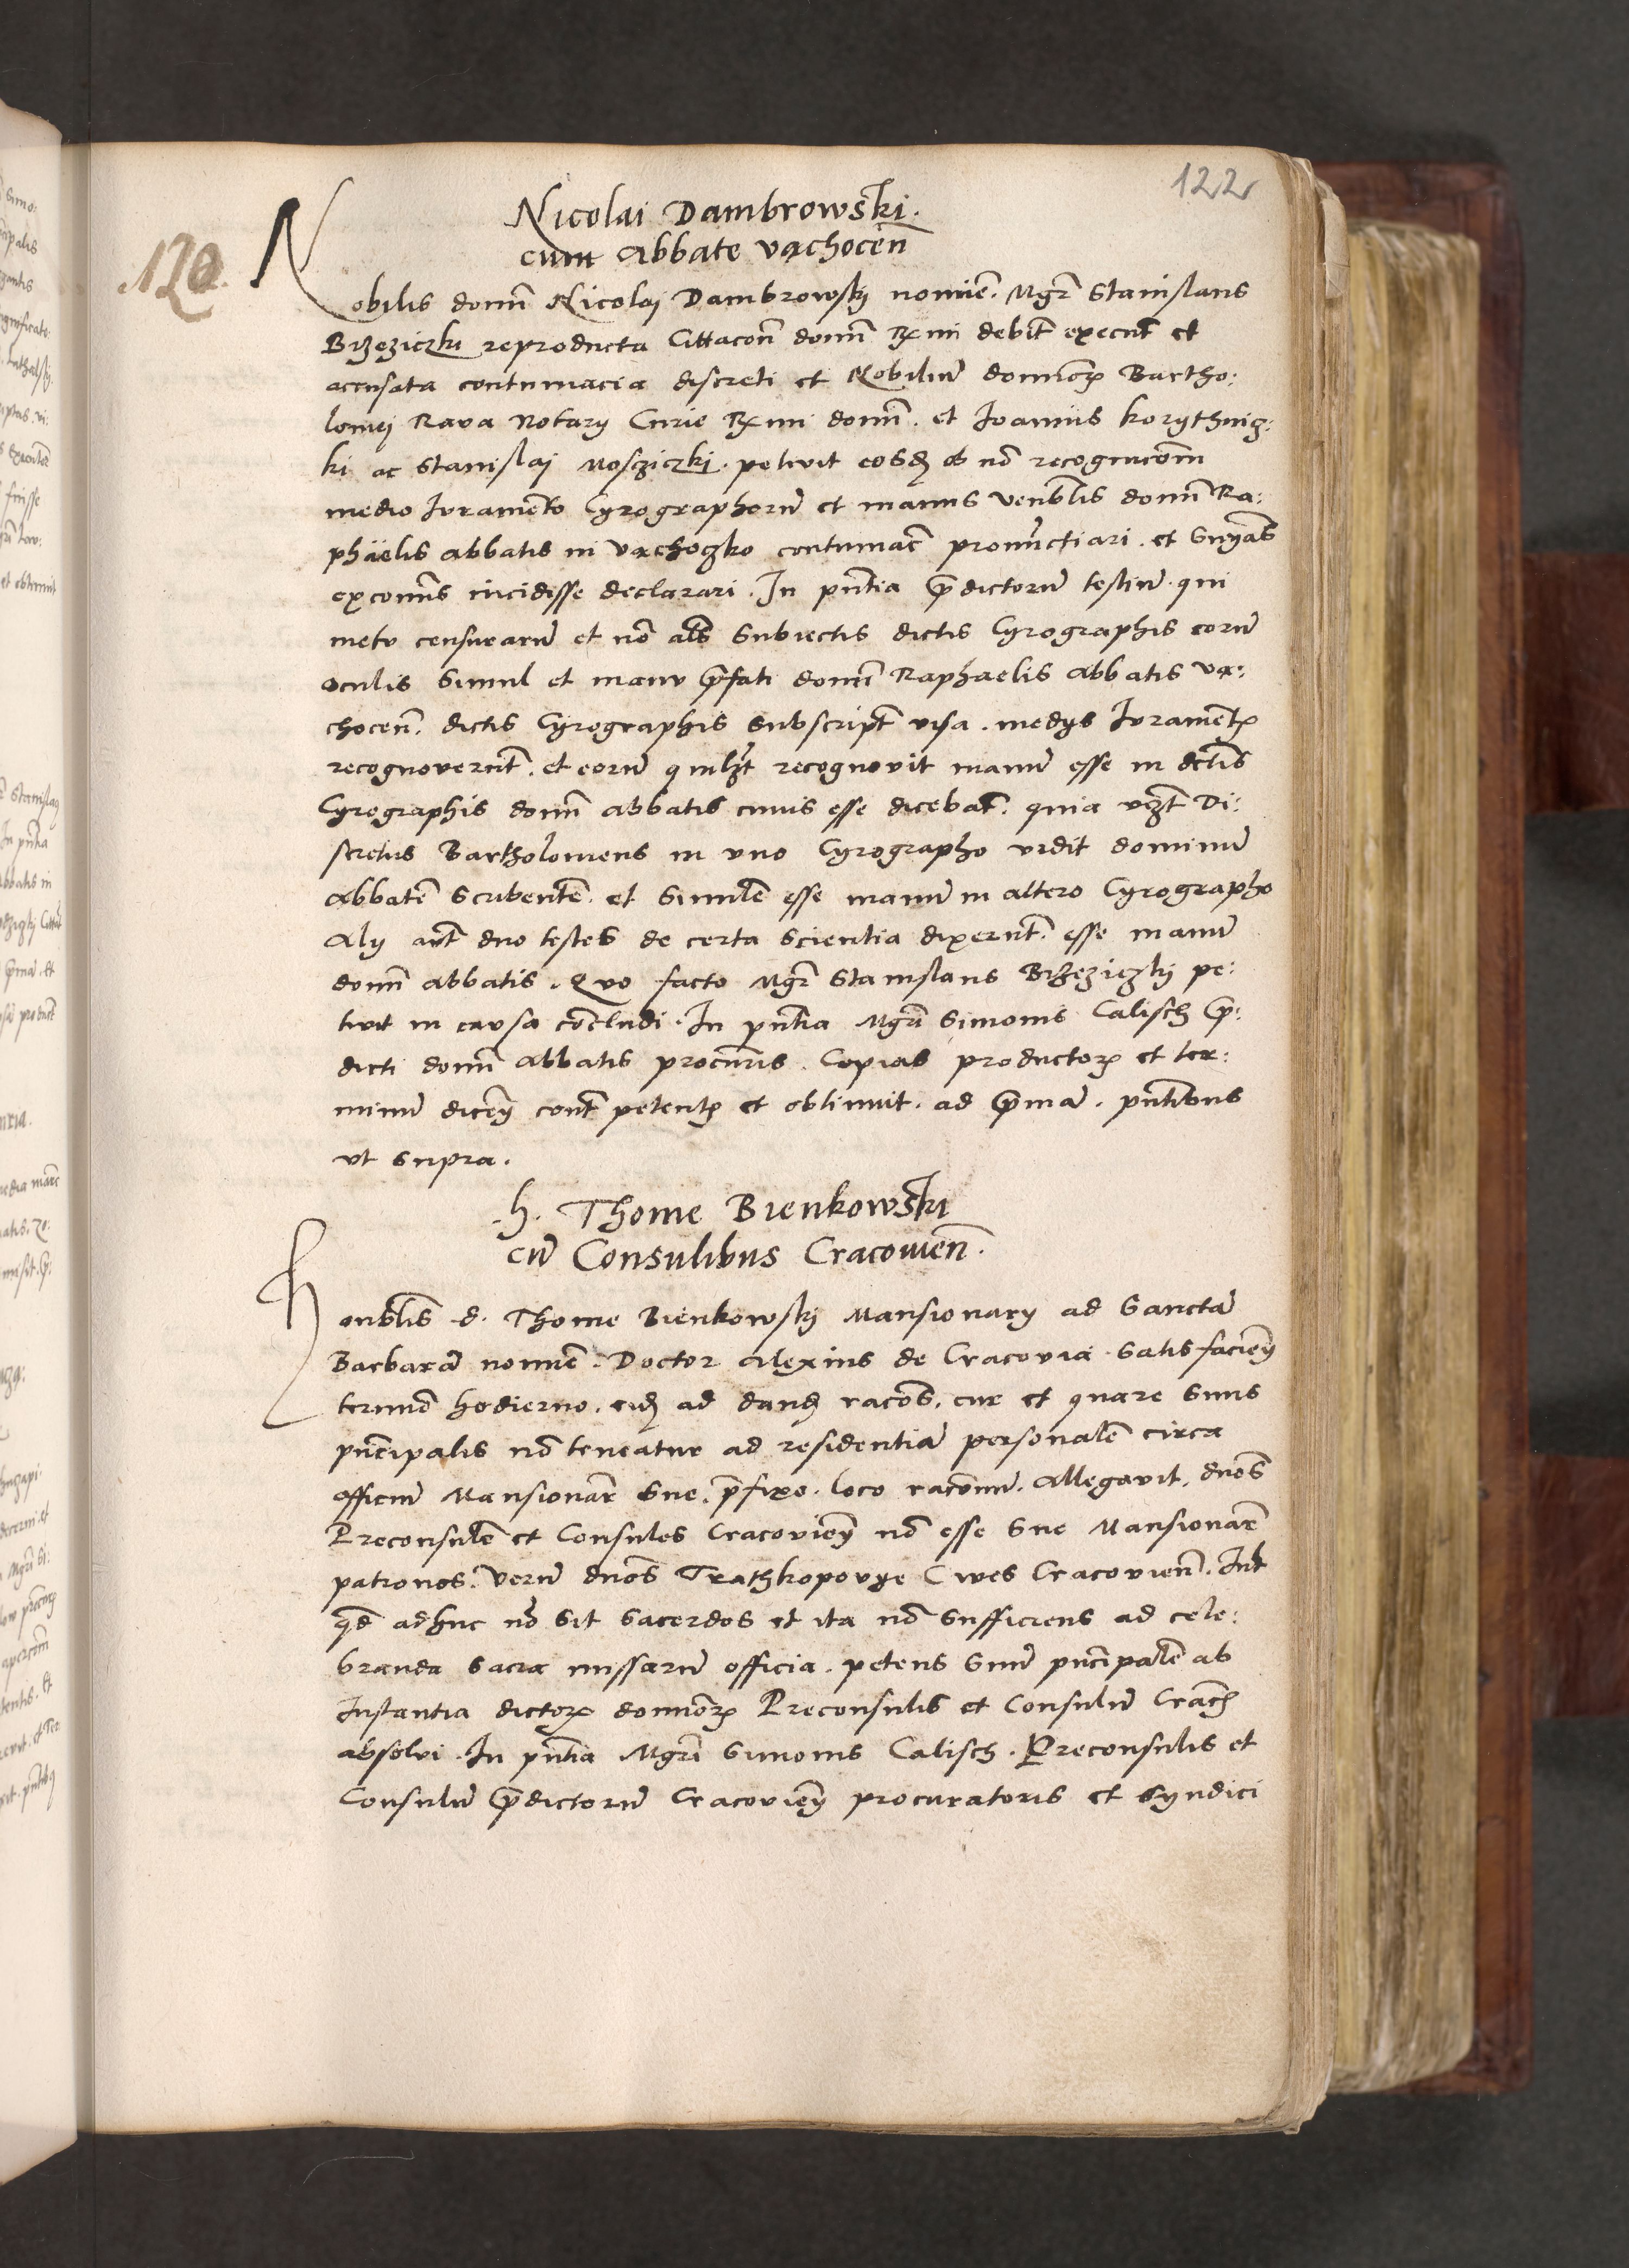 122
Nicolai Dambrowski.
cum Abbate vachoceñ
120.
Nobilis domĩ Nicolaj Dambrowskj nomiẽ. Mgr̃ Stanislaus
Brzeziczki reproducta Cittacoñ domĩ Rx̃mi debit̃ execut̃ et
accusata contumacia discreti et Nobiliũ domiorꝝ Bartho:
lomej Rava Notarÿ Curie Rx̃mi domĩ. et Joannis korythnig:
ki ac Stanislaj Mosziczkj. petivit eosdꝫ ob nõ recognicoẽm
medio Juramẽto Cyrographorũ et manus veñblis domĩ Ra:
phäelis abbatis in vachoczko contumac̃ pronũctiari. et Snÿas
excoĩs incidisse declarari. In pñtia p̃dictorũ testiũ. qui
metv censurarũ et nõ als̃ subiectis dictis Cyrographis eorũ
oculis simul et manv p̃fati domĩ Raphaelis Abbatis va:
choceñ. dictis Cyrographis subscript̃ visa. medÿs Juramẽtꝝ
recognoverũt. et eorũ quilꝫt recognovit manũ esse in dctĩs
Cyrographis domĩ abbatis cuius esse dicebat̃. quia vzt̃ Di:
scretus Bartholomeus in vno Cyrographo vidit dominũ
Abbatẽ scribentẽ. et similẽ esse manũ in altero Cyrographo
Alÿ aũt duo testes de certa scientia dixerũt. esse manũ
domĩ abbatis. Quo facto Mgr̃ Stanislaus Brzeziczkj pe:
tivit in cavsa cõcludi. In pñtia Mgr̃i Simonis Calisch p̃:
dicti domĩ abbatis procur̃is. Copias productorꝝ et ter:
minũ dicẽ̃ cont̃ petentꝝ et obtinuit. ad p̃mã. pñtibus
vt supra.
.h. Thome Bienkowski
cũ Consulibus Cracovieñ.
Honblis̃ d. Thome Bienkowskj Mansionarÿ ad Sanctã
Barbarã nomiẽ. Doctor Alexius de Cracovia. Satisfacieñ
termiõ hodierno. eidꝫ ad dandꝫ racoẽs. cur et quare suus
pñcipalis nõ teneatur ad residentiã personalẽ circa
officiũ Mansionar̃ sue. p̃fixo. loco racoñum. Allegavit. dnõs
Preconsulẽ et Consules Cracovieñ nõ esse sue Mansionar̃
patronos. verũ dnõs Trathkopovye Cives Cracovieñ. Itẽ
qd̃ adhuc nõ sit sacerdos et ita nõ sufficiens ad cele:
branda sacra missarũ officia. petens suũ pñcipalẽ ab
Instantia dictorꝝ domiorꝝ Preconsulis et Consulũ Crac̃
absolvi. In pñtia Mgr̃i Simonis Calisch. Preconsulis et
Consulũ p̃dictorũ Cracovieñ procuratoris et syndici